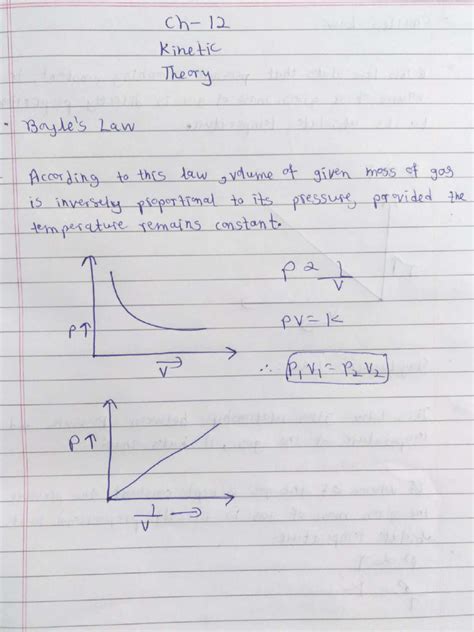 Ch-12
Kinetic
Theory
Boyle's Law
According to this law, volume of given mass of gas
is inversely proportional to its pressure, provided the
temperature remains constant.
P ∝ 1/V
P↑
PV = K
V→
∴ P₁V₁ = P₂V₂
P↑
1/V →